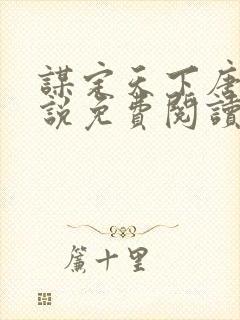 謀定天下唐
說免費閱讀
簾十里